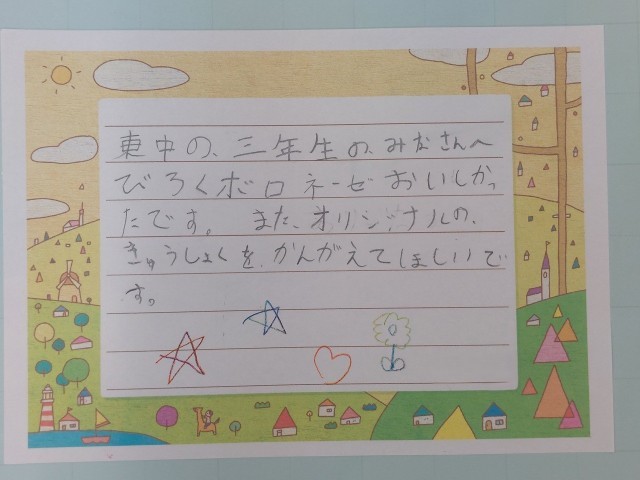 東中の、三年生の、みなさんへ
びろくボロネーゼおいしかっ
たです。また、オリジナルの、
きゅうしょくを、かんがえてほしいで
す。